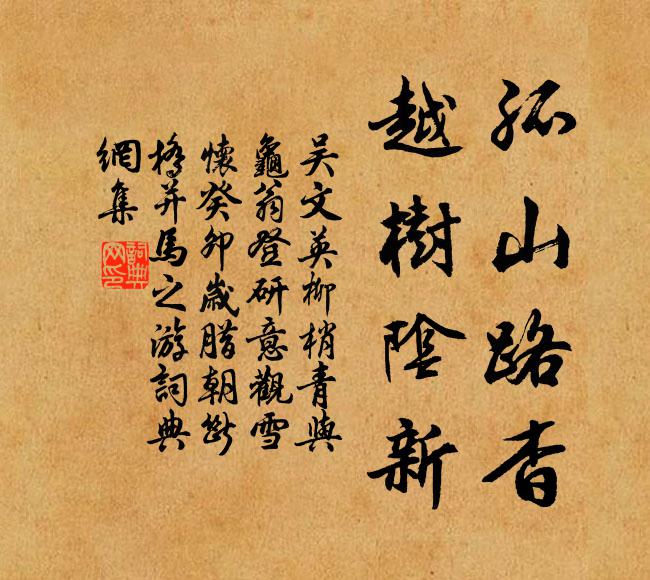 孤山路杳
越樹陰新
吴文英柳梢青與
龜翁登研意觀雪
懷癸卯歲腊朝斷
橋并馬之游詞典
網集
詞典
网印